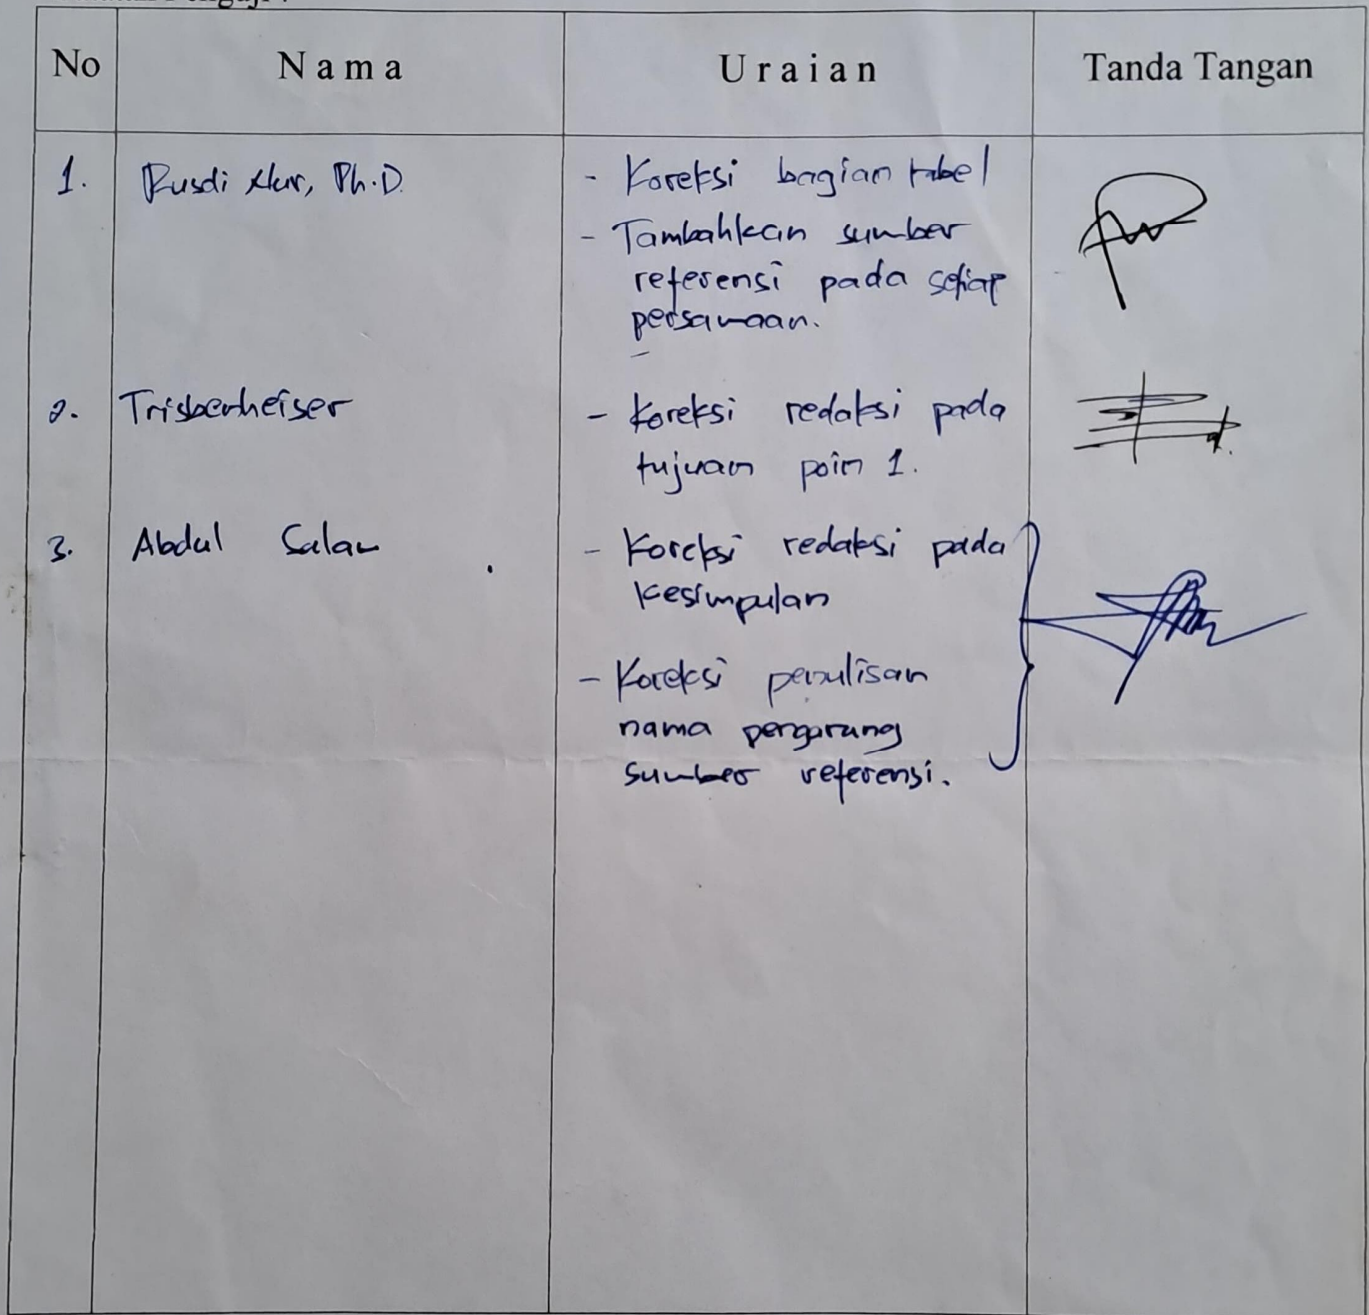 No N a m a U r a i a n Tanda Tangan
1. Rusdi Nur, Ph.D. - Koreksi bagian tabel
- Tambahkan sumber
referensi pada setiap
persamaan.
2. Trisbenheiser - Koreksi redaksi pada
tujuan poin 1.
3. Abdul Salam - Koreksi redaksi pada
kesimpulan
- Koreksi penulisan
nama pengarang
sumber referensi.